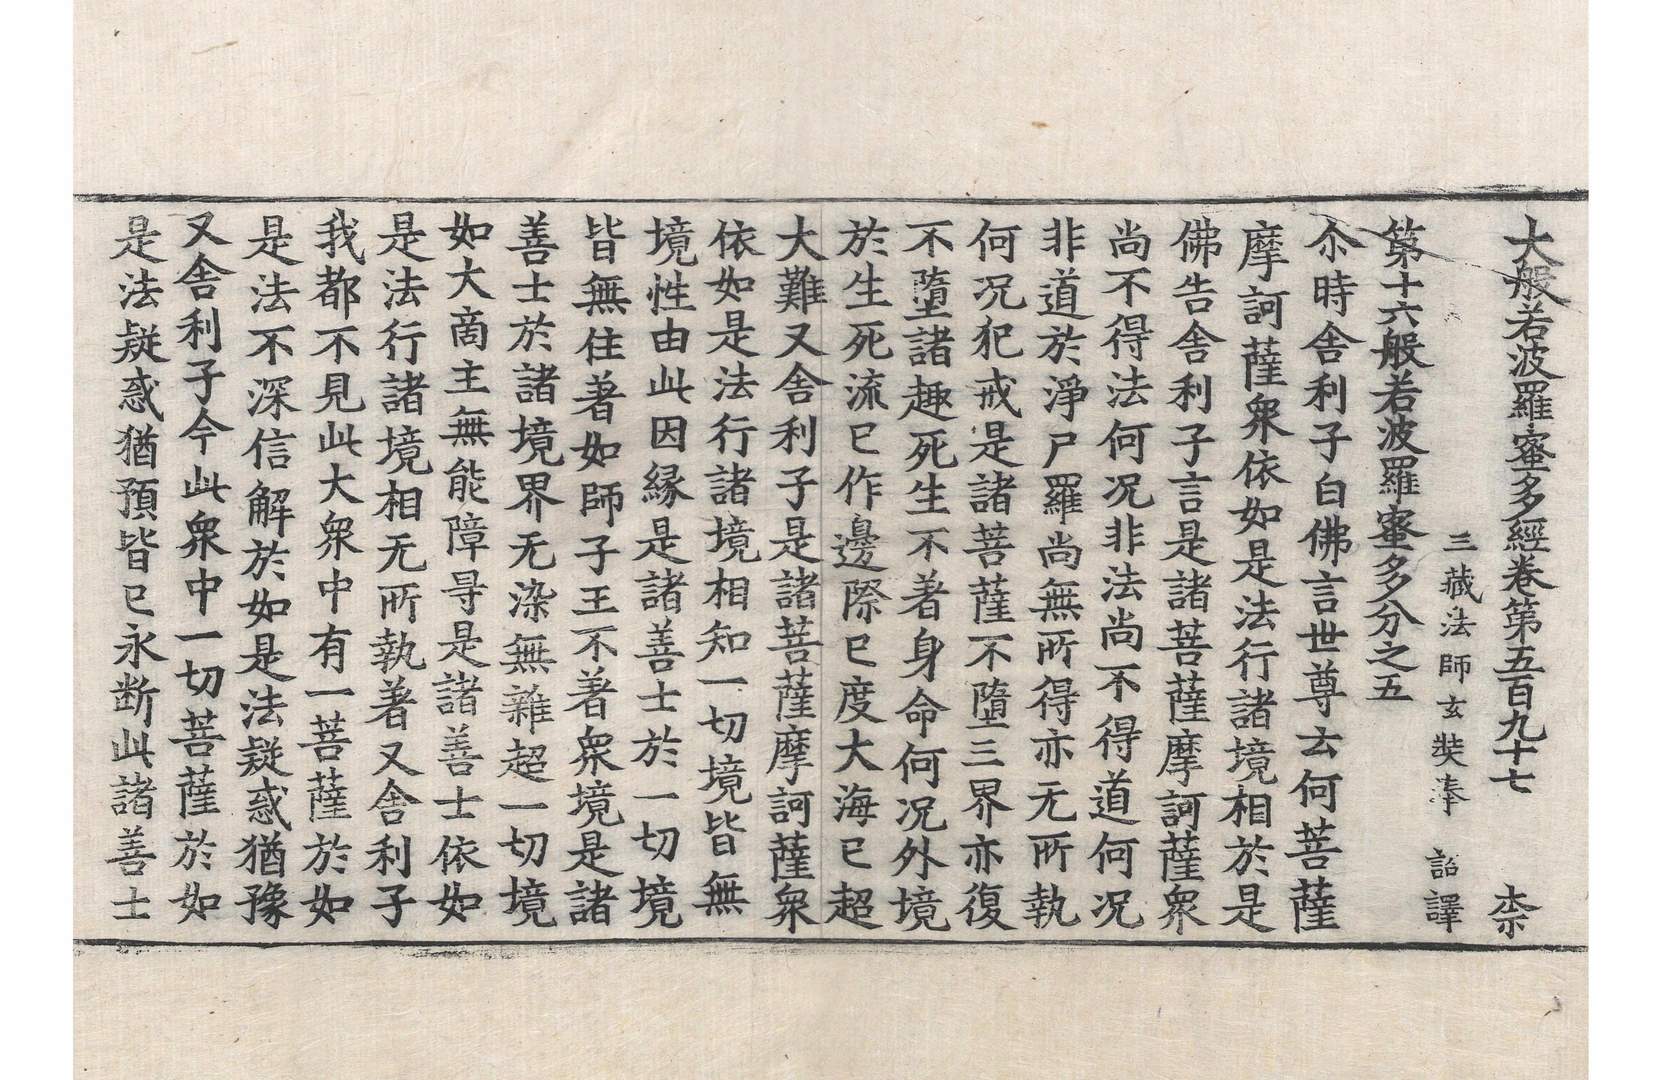 大般若波羅蜜多經卷第五百九十七 柰
三藏法師玄奘奉 詔譯
第十六般若波羅蜜多分之五
尒時舍利子白佛言世尊云何菩薩
摩訶薩衆依如是法行諸境相於是
佛告舍利子言是諸菩薩摩訶薩衆
尚不得法何况非法尚不得道何况
非道於淨尸羅尚無所得亦无所執
何况犯戒是諸菩薩不墮三界亦復
不墮諸趣死生不著身命何况外境
於生死流已作邊際已度大海已超
大難又舍利子是諸菩薩摩訶薩衆
依如是法行諸境相知一切境皆無
境性由此因緣是諸善士於一切境
皆無住著如師子王不著衆境是諸
善士於諸境界无染無雜超一切境
如大商主無能障㝵是諸善士依如
是法行諸境相无所執著又舍利子
我都不見此大衆中有一菩薩於如
是法不深信解於如是法疑惑猶豫
又舍利子今此衆中一切菩薩於如
是法疑惑猶預皆已永断此諸善士